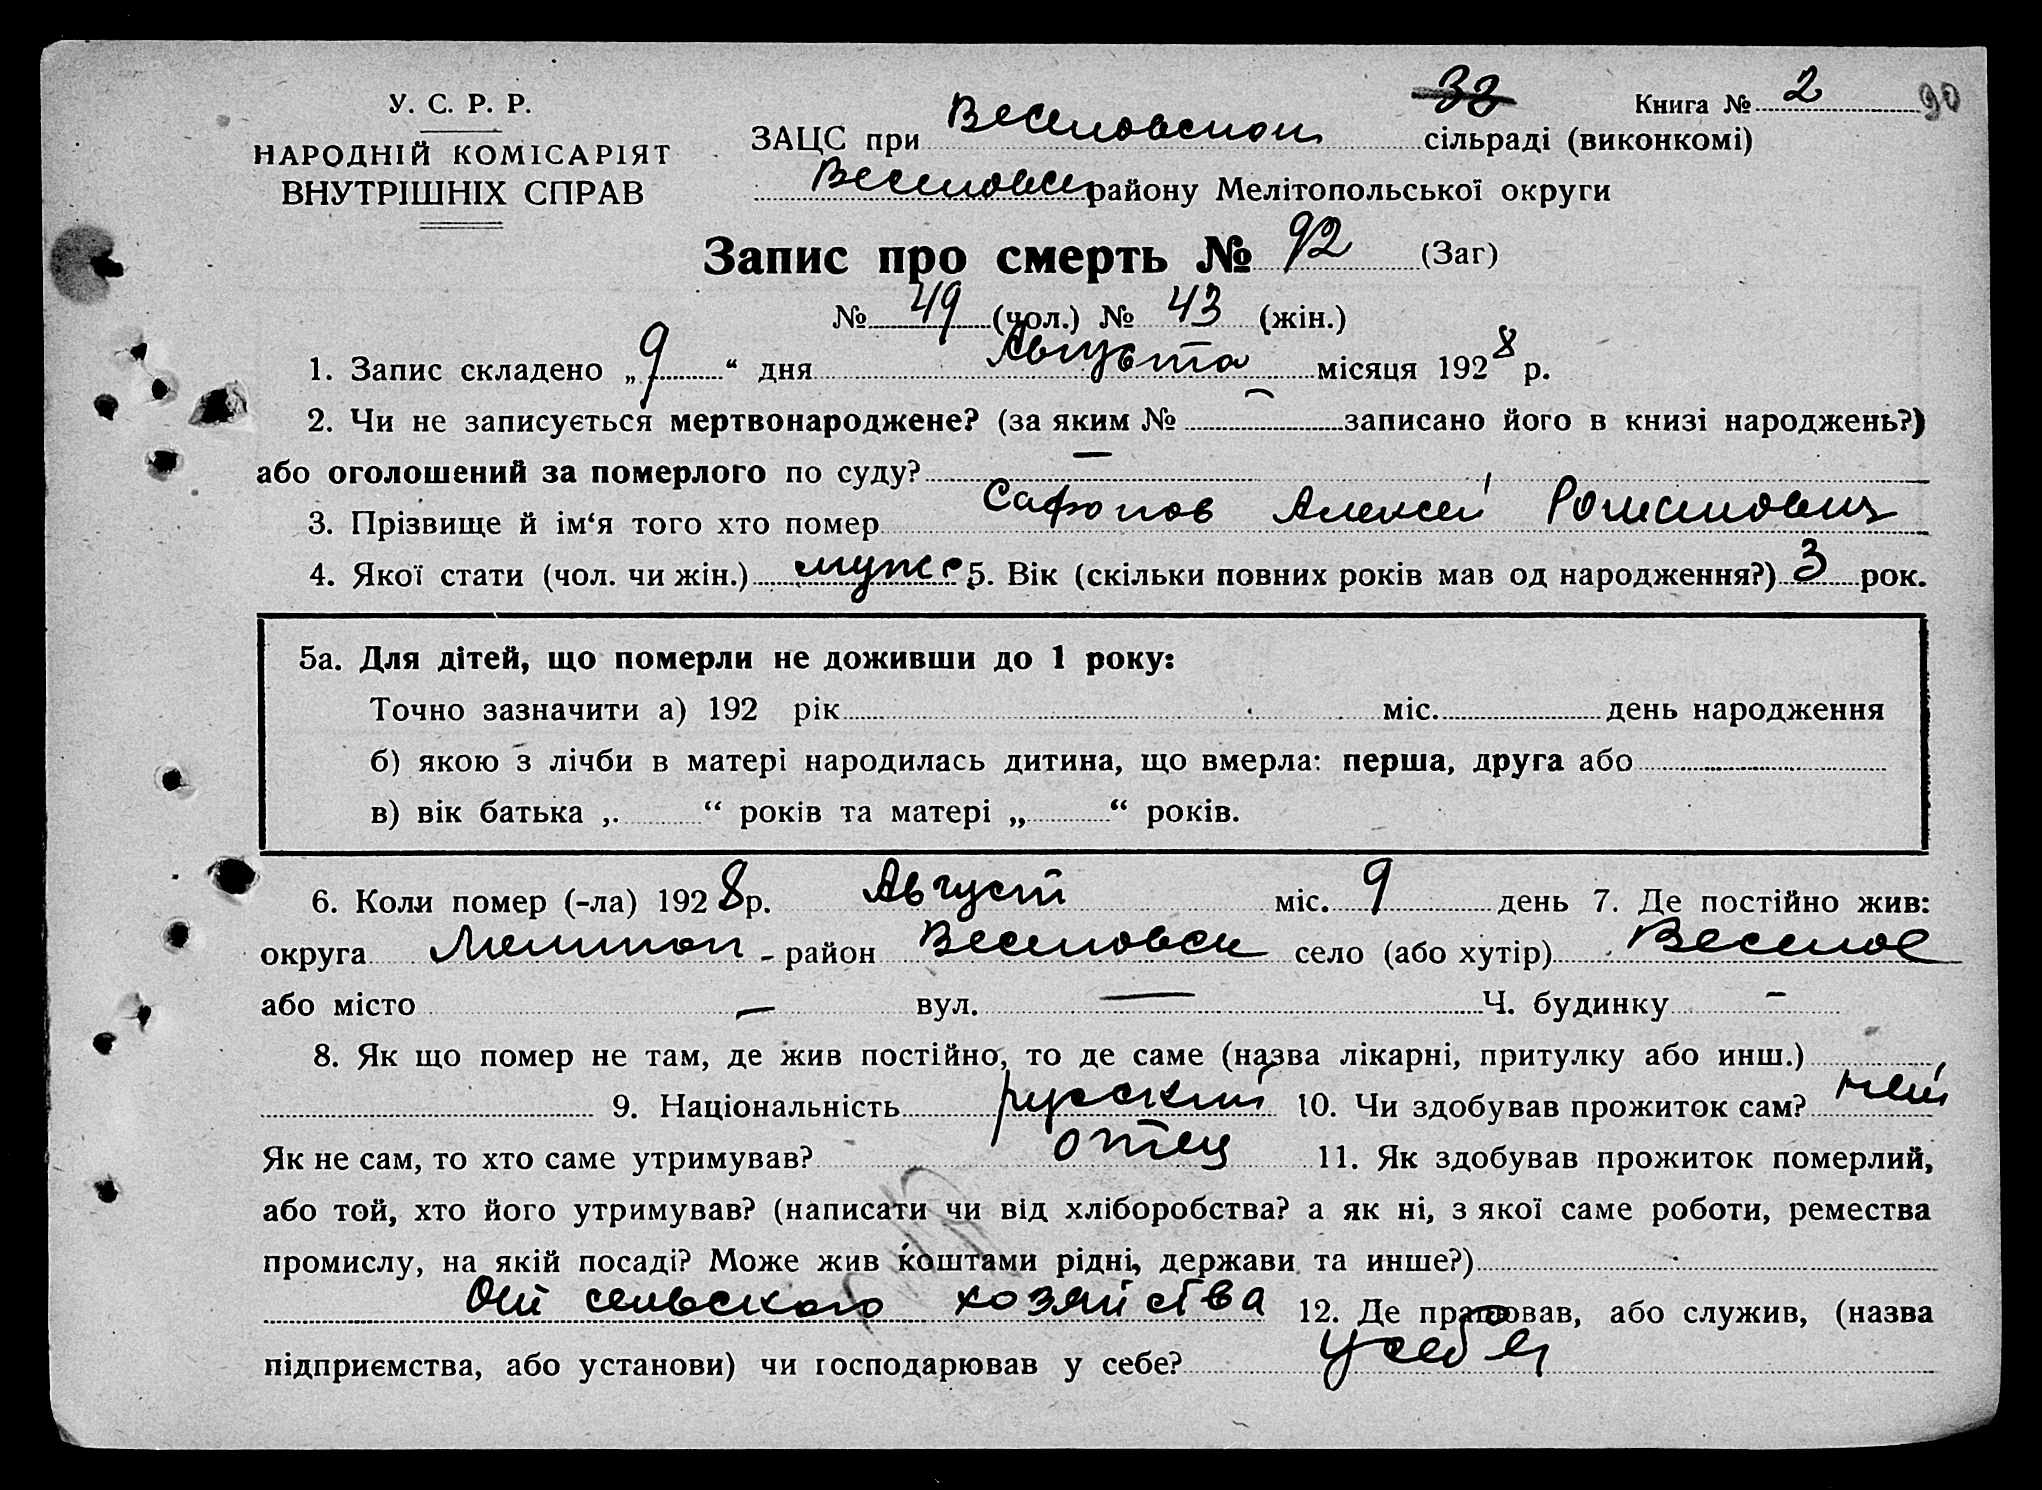 У. С. Р. Р.
НАРОДНІЙ КОМІСАРІЯТ
ВНУТРІШНІХ СПРАВ
38 Книга № 2 90
ЗАЦС при Веселовском сільраді (виконкомі)
Веселовск району Мелітопольської округи
Запис про смерть № 92 (Заг)
№ 49 (чол.) № 43 (жін.)
1. Запис складено „ 9 “ дня Августа місяця 1928 р.
2. Чи не записується мертвонароджене? (за яким № — записано його в книзі народжень?)
або оголошений за померлого по суду? —
3. Прізвище й ім‘я того хто помер Сафонов Алексей
4. Якої стати (чол. чи жін.) муж 5. Вік (скільки повних років мав од народження?) 3 рок.
5а. Для дітей, що померли не доживши до 1 року:
Точно зазначити а) 192 рік міс. день народження
б) якою з лічби в матері народилась дитина, що вмерла: перша, друга або
в) вік батька „ “ років та матері „ “ років.
6. Коли помер (-ла) 1928 р. Август міс. 9 день 7. Де постійно жив:
округа Мелитоп - район Веселовск село (або хутір) Веселое
або місто — вул. — Ч. будинку -
8. Як що помер не там, де жив постійно, то де саме (назва лікарні, притулку або инш.)
9. Національність русский 10. Чи здобував прожиток сам?
Як не сам, то хто саме утримував? отец 11. Як здобував прожиток померлий,
або той, хто його утримував? (написати чи від хліборобства? а як ні, з якої саме роботи, ремества
промислу, на якій посаді? Може жив коштами рідні, держави та инше?)
От сельского хозяйства 12. Де працював, або служив, (назва
підприємства, або установи) чи господарював у себе? у себя